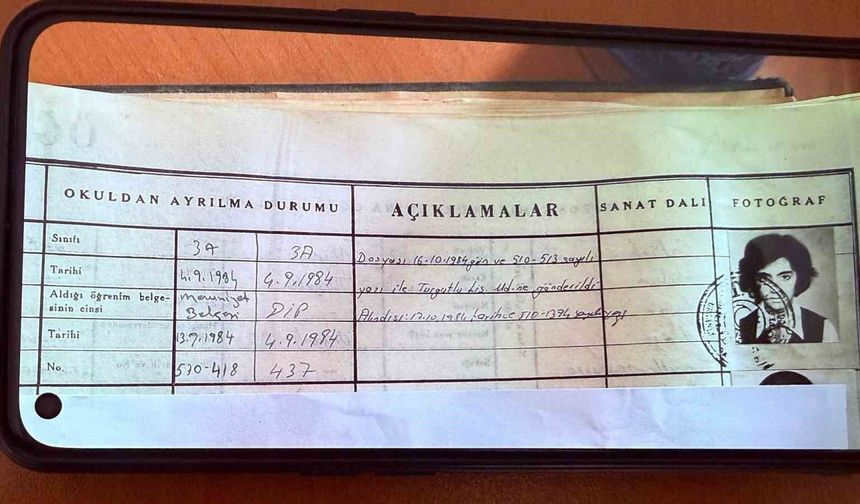 OKULDAN AYRILMA DURUMU AÇIKLAMALAR SANAT DALI FOTOĞRAF
Sınıfı 3A 3A
Dosyası 16-10-1984 gün ve 510-513 sayılı
Tarihi 4.9.1984 4.9.1984
yazı ile Turgutlu Lis. Md.ne gönderildi
Aldığı öğrenim belge-
sinin cinsi Mezuniyet
Belgesi DİP
Alındısı: 17.10.1984 tarih ve 510-1394 sayılı yazı
Tarihi 13.9.1984 4.9.1984
No. 510-418 437